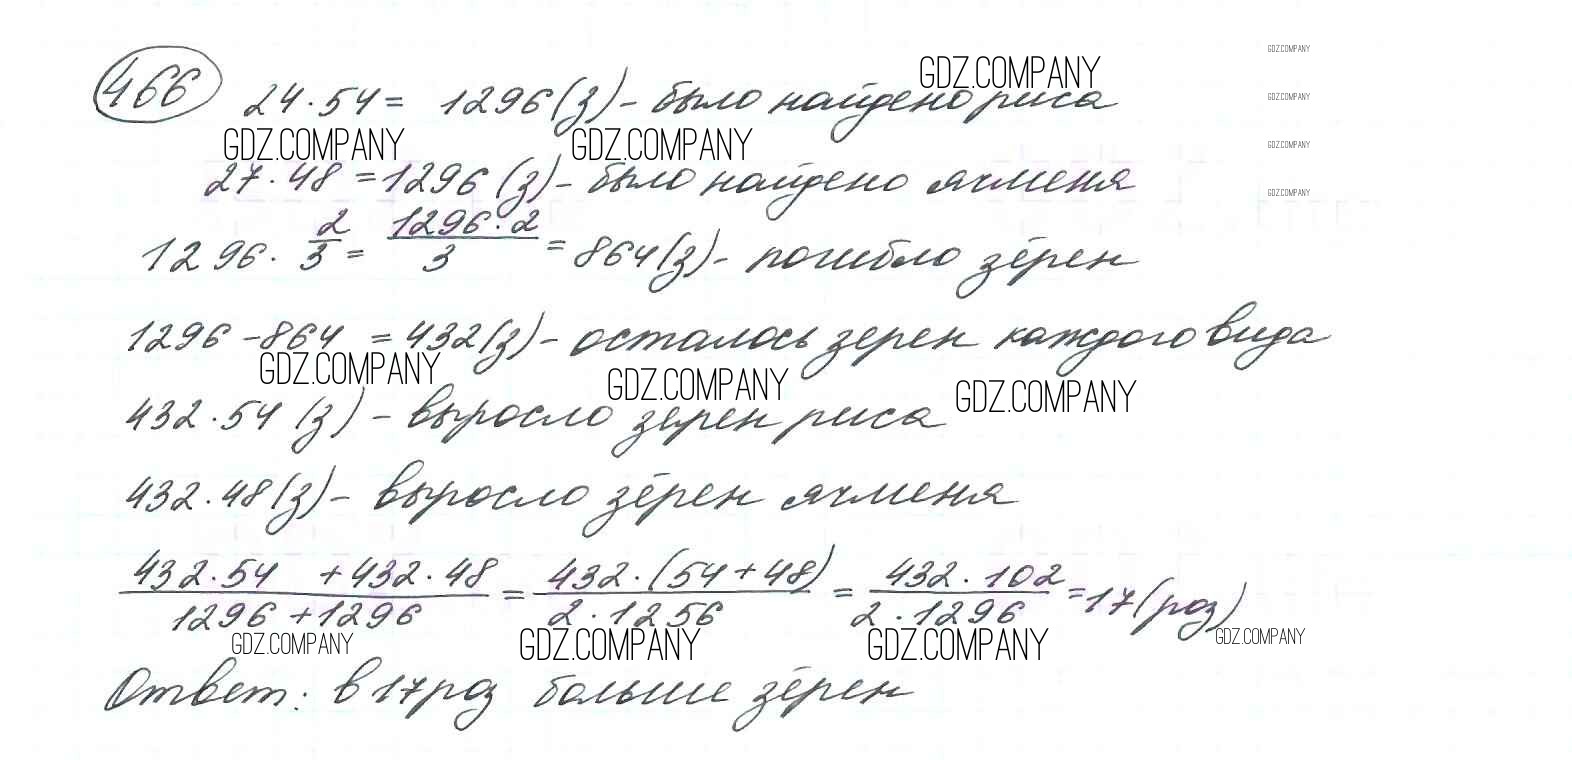 466 24·54= 1296(з) - было найдено риса
GDZ.COMPANY
GDZ.COMPANY
GDZ.COMPANY
GDZ.COMPANY GDZ.COMPANY
GDZ.COMPANY
27·48 =1296 (з) - было найдено ячменя
GDZ.COMPANY
1296· 2/3 = 1296·2/3 = 864(з) - погибло зёрен
1296 -864 =432(з) - осталось зерен каждого вида
GDZ.COMPANY GDZ.COMPANY GDZ.COMPANY
432·54 (з) - выросло зерен риса
432·48(з) - выросло зёрен ячменя
432·54 +432·48/1296+1296 = 432·(54+48)/2·1256 = 432·102/2·1296 =17(роз)
GDZ.COMPANY GDZ.COMPANY GDZ.COMPANY GDZ.COMPANY
Ответ: в 17 роз больше зёрен